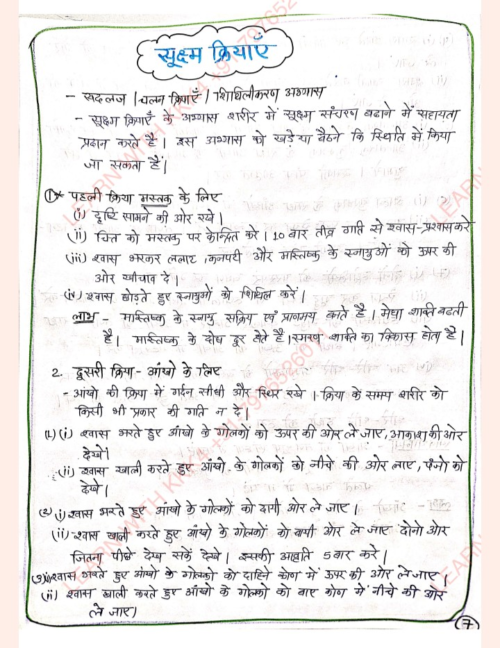 सूक्ष्म क्रियाएँ
- सदलज / चलन क्रियाएँ / शिथिलीकरण अभ्यास
- सूक्ष्म क्रियाएँ के अभ्यास शरीर में सूक्ष्म संचरण बढाने में सहायता
प्रदान करते है। इस अभ्यास को खड़े या बैठने कि स्थिति में किया
जा सकता है।
① * पहली क्रिया मस्तक के लिए
(i) दृष्टि सामने की ओर रखे।
(ii) चित को मस्तक पर केन्द्रित करे। 10 बार तीव्र गति से श्वास-प्रश्वास करे
(iii) श्वास भरकर ललाट, कनपटी और मस्तिष्क के स्नायुओं को ऊपर की
ओर खींचाव दे।
(iv) श्वास छोड़ते हुए स्नायुओं को शिथिल करें।
लाभ - मास्तिष्क के स्नायु सक्रिय एवं प्राणमय बनते है। मेधा शक्ति बढती
है। मास्तिष्क के दोष दूर होते है। स्मरण शक्ति का विकास होता है।
2. दूसरी क्रिया - आंखो के लिए
- आंखो की क्रिया में गर्दन सीधी और स्थिर रखे। क्रिया के समय शरीर को
किसी भी प्रकार की गति न दे।
(1) (i) श्वास भरते हुए आंखो के गोलकों को ऊपर की ओर ले जाए, आकाश की ओर
देखे।
(ii) श्वास खाली करते हुए आंखो के गोलकों को नीचे की ओर लाए, पंजो को
देखे।
(2) (i) श्वास भरते हुए आंखो के गोलकों को दायी ओर ले जाए।
(ii) श्वास खाली करते हुए आंखो के गोलकों को बायी ओर ले जाए दोनो ओर
जितना पीछे देख सकें देखे। इसकी आवृति 5 बार करे।
(3) (i) श्वास भरते हुए आंखो के गोलको को दाहिने कोण में ऊपर की ओर ले जाए।
(ii) श्वास खाली करते हुए आँखो के गोलको को बाए कोण में नीचे की ओर
ले जाए।
(7)
LEARN WITH